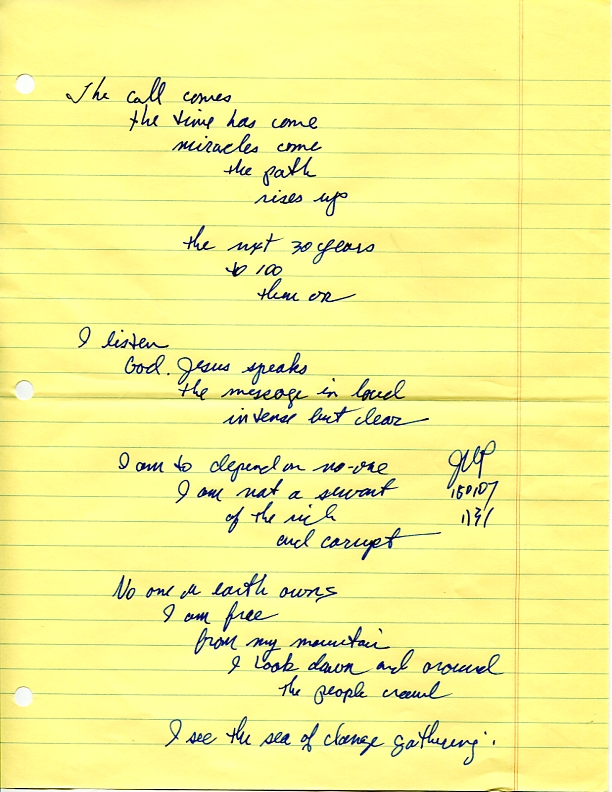 The call comes
the time has come
miracles come
the path
rises up
the next 30 years
to 100
then on
I listen
God. Jesus speaks
the message in loud
intense but clear
I am to depend on no-one
I am not a servant
of the rich
and corrupt
JWP
150107
1131
No one on earth owns
I am free
from my mountain
I look down and around
the people crawl
I see the sea of change gathering.